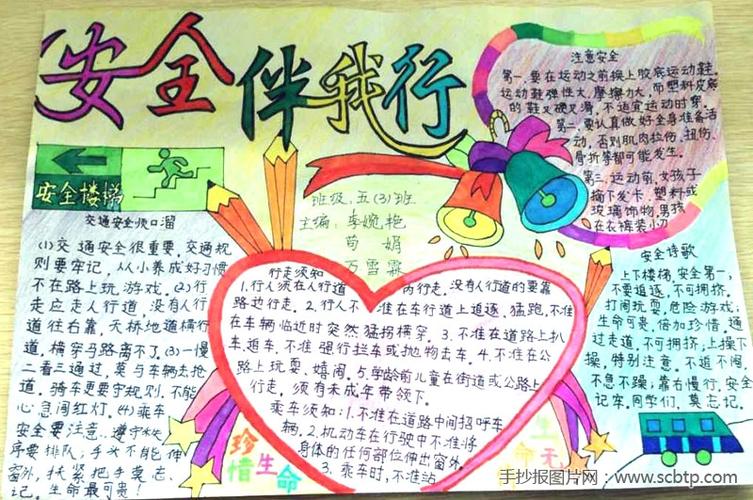 安全伴我行
安全楼梯
交通安全顺口溜
(1)交通安全很重要,交通规
则要牢记,从小养成好习惯,
不在路上玩游戏。(2)行
走应走人行道,没有人行
道往右靠,天桥地道横行
道,横穿马路离不了。(3)一慢
二看三通过,莫与车辆去抢
道。骑车更要守规则,不能
心急闯红灯。(4)乘车
安全要注意,遵守秩
序要排队;手头不能伸
窗外,扶紧把手莫忘
记。生命最可贵!
班级:五(3)班
主编:李婉艳
苟娟
万雪霖
行走须知
1.行人须在人行道内行走,没有人行道的要靠
路边行走。2.行人不准在车行道上追逐、猛跑,不准
在车辆临近时突然猛拐横穿。3.不准在道路上扒
车、追车、不准强行拦车或抛物击车。4.不准在公
路上玩耍、嬉闹。5.学龄前儿童在街道或公路上
行走,须有未成年带领下。
乘车须知:1.不准在道路中间招呼车
辆。2.机动车在行驶中不准将
身体的任何部位伸出窗外。
3.乘车时,不准站
珍惜生命
生命无
注意安全
第一,要在运动之前换上胶底运动鞋。
运动鞋弹性大,摩擦力大,而塑料皮底
的鞋又硬又滑,不适宜运动时穿。
第二,要认真做好全身准备活
动,否则肌肉拉伤、扭伤、
骨折等都可能发生。
第三,运动前,女孩子
摘下发卡,塑料或
玻璃饰物,男孩
在衣裤装小刀
安全诗歌
上下楼梯,安全第一,
不要追逐,不可拥挤。
打闹玩耍,危险游戏;
生命可贵,倍加珍惜。通
过走道,不可拥挤;上操下
操,特别注意。不追不闹,
不急不躁;靠右慢行,安全
记牢。同学们,莫忘记。
手抄报图片网:www.scbtp.com